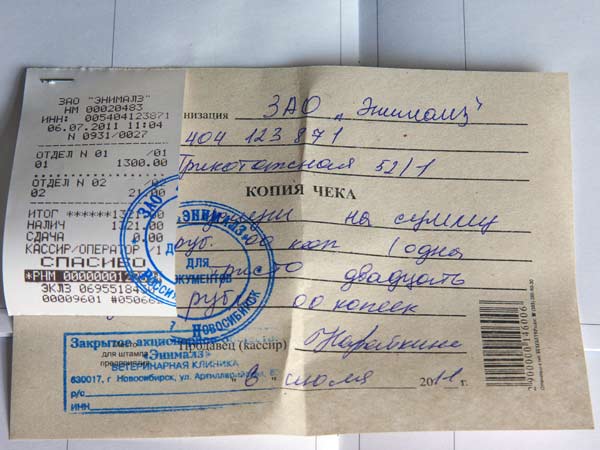 ЗАО "ЭНИМАЛЗ"
НМ 00020483
ИНН: 005404123871
06.07.2011 11:04
N 0931/0027
ОТДЕЛ N 01 /01
01 1300.00
ОТДЕЛ N 02 /02
02 21.00
ИТОГ ******1321.00
НАЛИЧ 1321.00
СДАЧА 0.00
КАССИР/ОПЕРАТОР /1
СПАСИБО
ЭКЛЗ 0695518
00009601 #05066
низация ЗАО "Энималз"
404 123 871
Трикотажная 52/1
КОПИЯ ЧЕКА
на сумму
руб. 00 коп (одна
триста двадцать
рубль 00 копеек
Продавец (кассир)
"6" июля 2011 г.
ЗАО "ЭНИМАЛЗ"
ДЛЯ
ДОКУМЕНТОВ
г. НОВОСИБИРСК
Закрытое акционерное
для штампа
предприятия
"Энималз"
ВЕТЕРИНАРНАЯ КЛИНИКА
630017, г. Новосибирск, ул.
р/с
ИНН
2900000146006